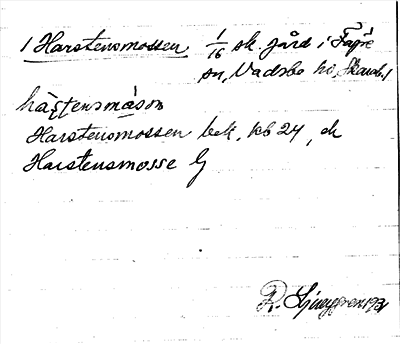 1 Harstensmossen 1/16 sk. gård i Fägre
sn, Vadsbo hd, Skarabl
hàṣṭensmåsən
Harstensmossen bek. kb 24, ek
Harstensmosse G
R. Ljunggren 1931